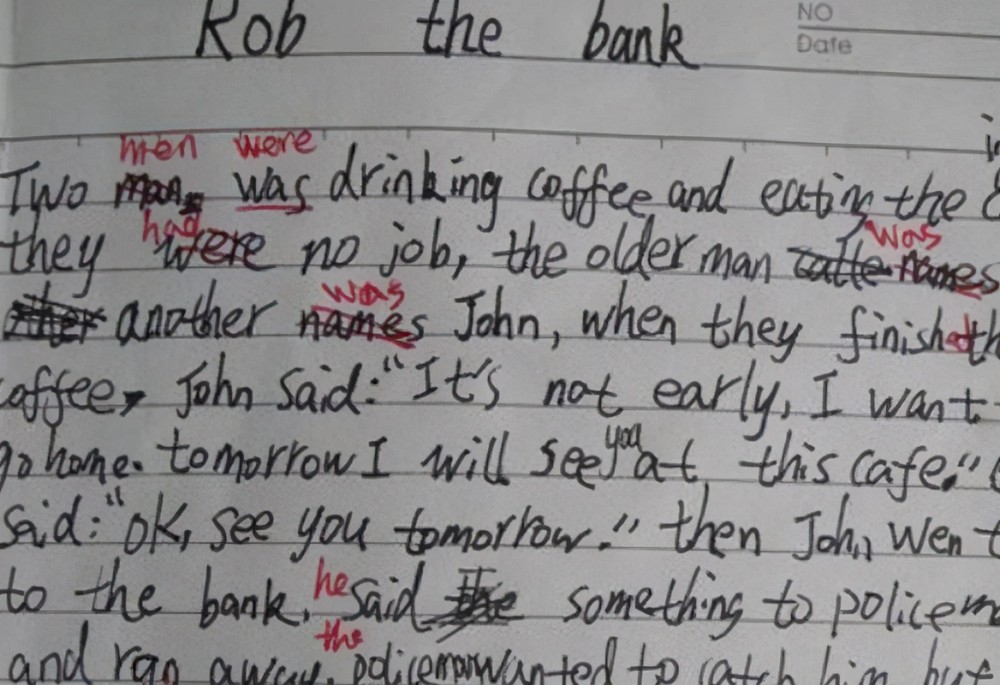 Rob the bank
NO
Date
men were
Two man was drinking coffee and eating the
had was
they were no job, the older man names
was
another names John, when they finished th
coffee, John said:"It's not early, I want
go home. tomorrow I will see you at this cafe."
said:"OK, see you tomorrow." then John went
to the bank. he said something to policem
the
and ran away. policeman wanted to catch him but